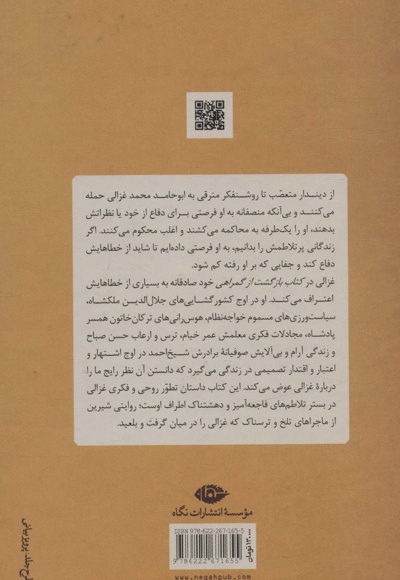 از دیندار متعصّب تا روشنفکر مترقی به ابوحامد محمد غزالی حمله
می‌کنند و بی‌آنکه منصفانه به او فرصتی برای دفاع از خود یا نظراتش
بدهند، او را یک‌طرفه به محاکمه می‌کشند و اغلب محکوم می‌کنند. اگر
زندگانی پرتلاطمش را بدانیم، به او فرصتی داده‌ایم تا شاید از خطاهایش
دفاع کند و جفایی که بر او رفته کم شود.
غزالی در کتاب بازگشت از گمراهی خود صادقانه به بسیاری از خطاهایش
اعتراف می‌کند. او در اوج کشورگشایی‌های جلال‌الدین ملکشاه،
سیاست‌ورزی‌های مسموم خواجه‌نظام، هوس‌رانی‌های ترکان‌خاتون همسر
پادشاه، مجادلات فکری معلمش عمر خیام، ترس و ارعاب حسن صباح
و زندگی آرام و بی‌آلایش صوفیانهٔ برادرش شیخ‌احمد در اوج اشتهار و
اعتبار و اقتدار تصمیمی در زندگی می‌گیرد که دانستن آن نظر رایج ما را
دربارهٔ غزالی عوض می‌کند. این کتاب داستان تطوّر روحی و فکری غزالی
در بستر تلاطم‌های فاجعه‌آمیز و دهشتناک اطراف اوست؛ روایتی شیرین
از ماجراهای تلخ و ترسناک که غزالی را در میان گرفت و بلعید.
مؤسسهٔ انتشارات نگاه
ISBN: 978-622-267-165-5
9 786222 671655
تومان
www.negahpub.com
طرح جلد: پرویز بیانی